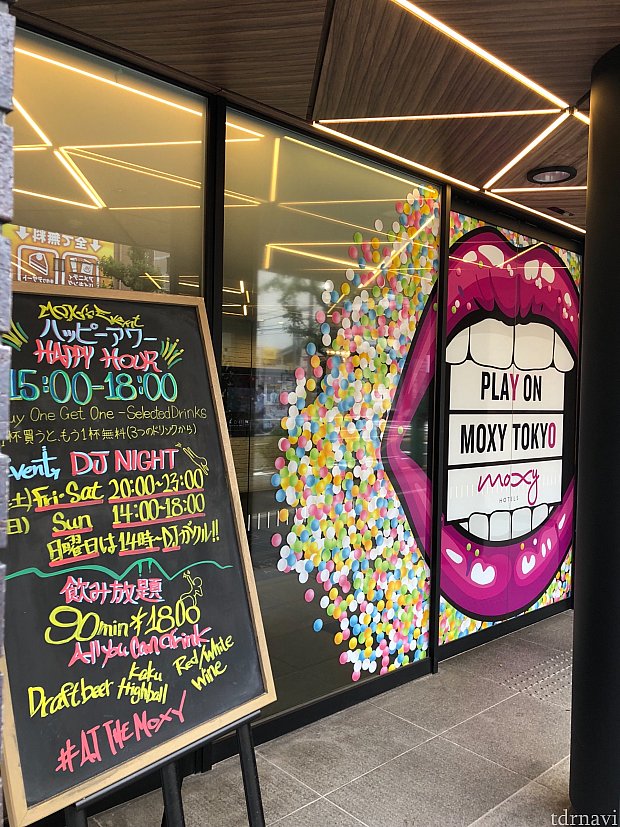 ↓全て無料↓
MOXY's Event
ハッピーアワー
HAPPY HOUR
15:00-18:00
Buy One Get One - Selected Drinks
1杯買うと、もう1杯無料(3つのドリンクから)
Event DJ NIGHT
土) Fri・Sat 20:00~23:00
日) Sun 14:00-18:00
日曜日は14時~DJがクル!!
飲み放題
90min*1800
All You Can drink
Draft beer Kaku Highball Red/White wine
#AT THE MOXY
PLAY ON
MOXY TOKYO
moxy
HOTELS
tdrnavi